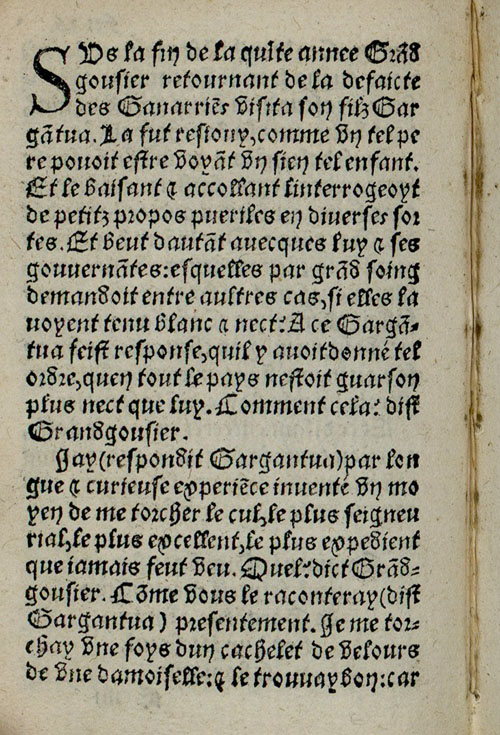 SVs la fin de la quīte annee Grād
gousier retournant de la defaicte
des Ganarriēs visita son filz Gar
gātua. La fut resiouy, comme vn tel pe
re pouoit estre voyāt vn sien tel enfant.
Et le baisant & accollant linterrogeoyt
de petitz propos pueriles en diuerses sor
tes. Et beut dautāt auecques luy & ses
gouuernātes: esquelles par grād soing
demandoit entre aultres cas, si elles la
uoyent tenu blanc & nect? A ce Gargā-
tua feist response, quil y auoit donné tel
ordre, quen tout le pays nestoit guarson
plus nect que luy. Comment cela? dist
Grandgousier.
Jay (respondit Gargantua) par lon
gue & curieuse experiēce inuenté vn mo
yen de me torcher le cul, le plus seigneu
rial, le plus excellent, le plus expedient
que iamais feut veu. Quel? dict Grād-
gousier. Cōme vous le raconteray (dist
Gargantua) presentement. Je me tor-
chay vne foys dun cachelet de velours
de vne damoiselle: & le trouuay bon: car